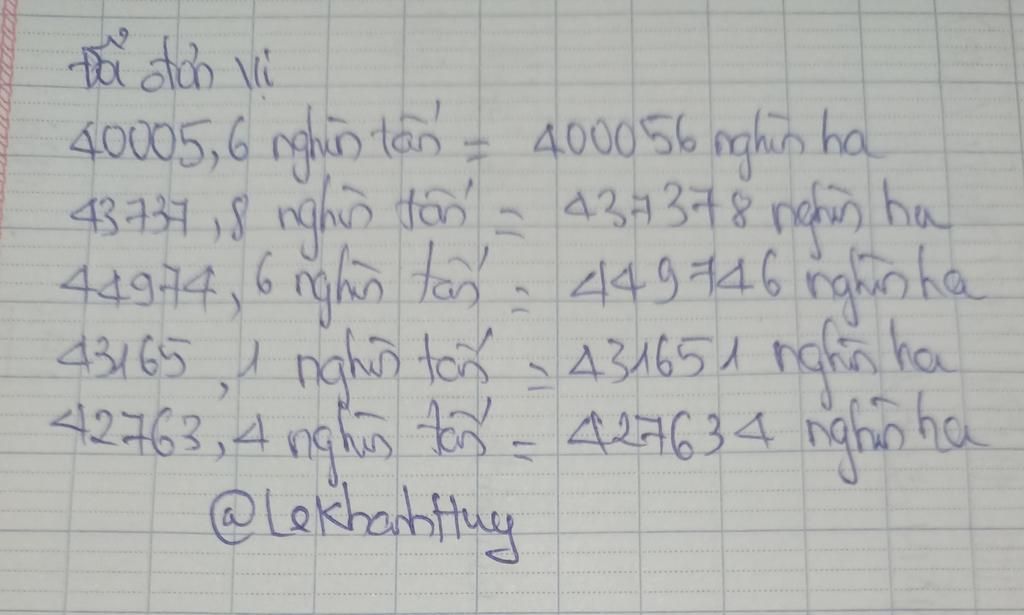 Đổi đơn vị
40005,6 nghìn tấn = 400056 nghìn ha
43737,8 nghìn tấn = 437378 nghìn ha
44974,6 nghìn tấn = 449746 nghìn ha
43165,1 nghìn tấn = 431651 nghìn ha
42763,4 nghìn tấn = 427634 nghìn ha
@LeKhanhHuy